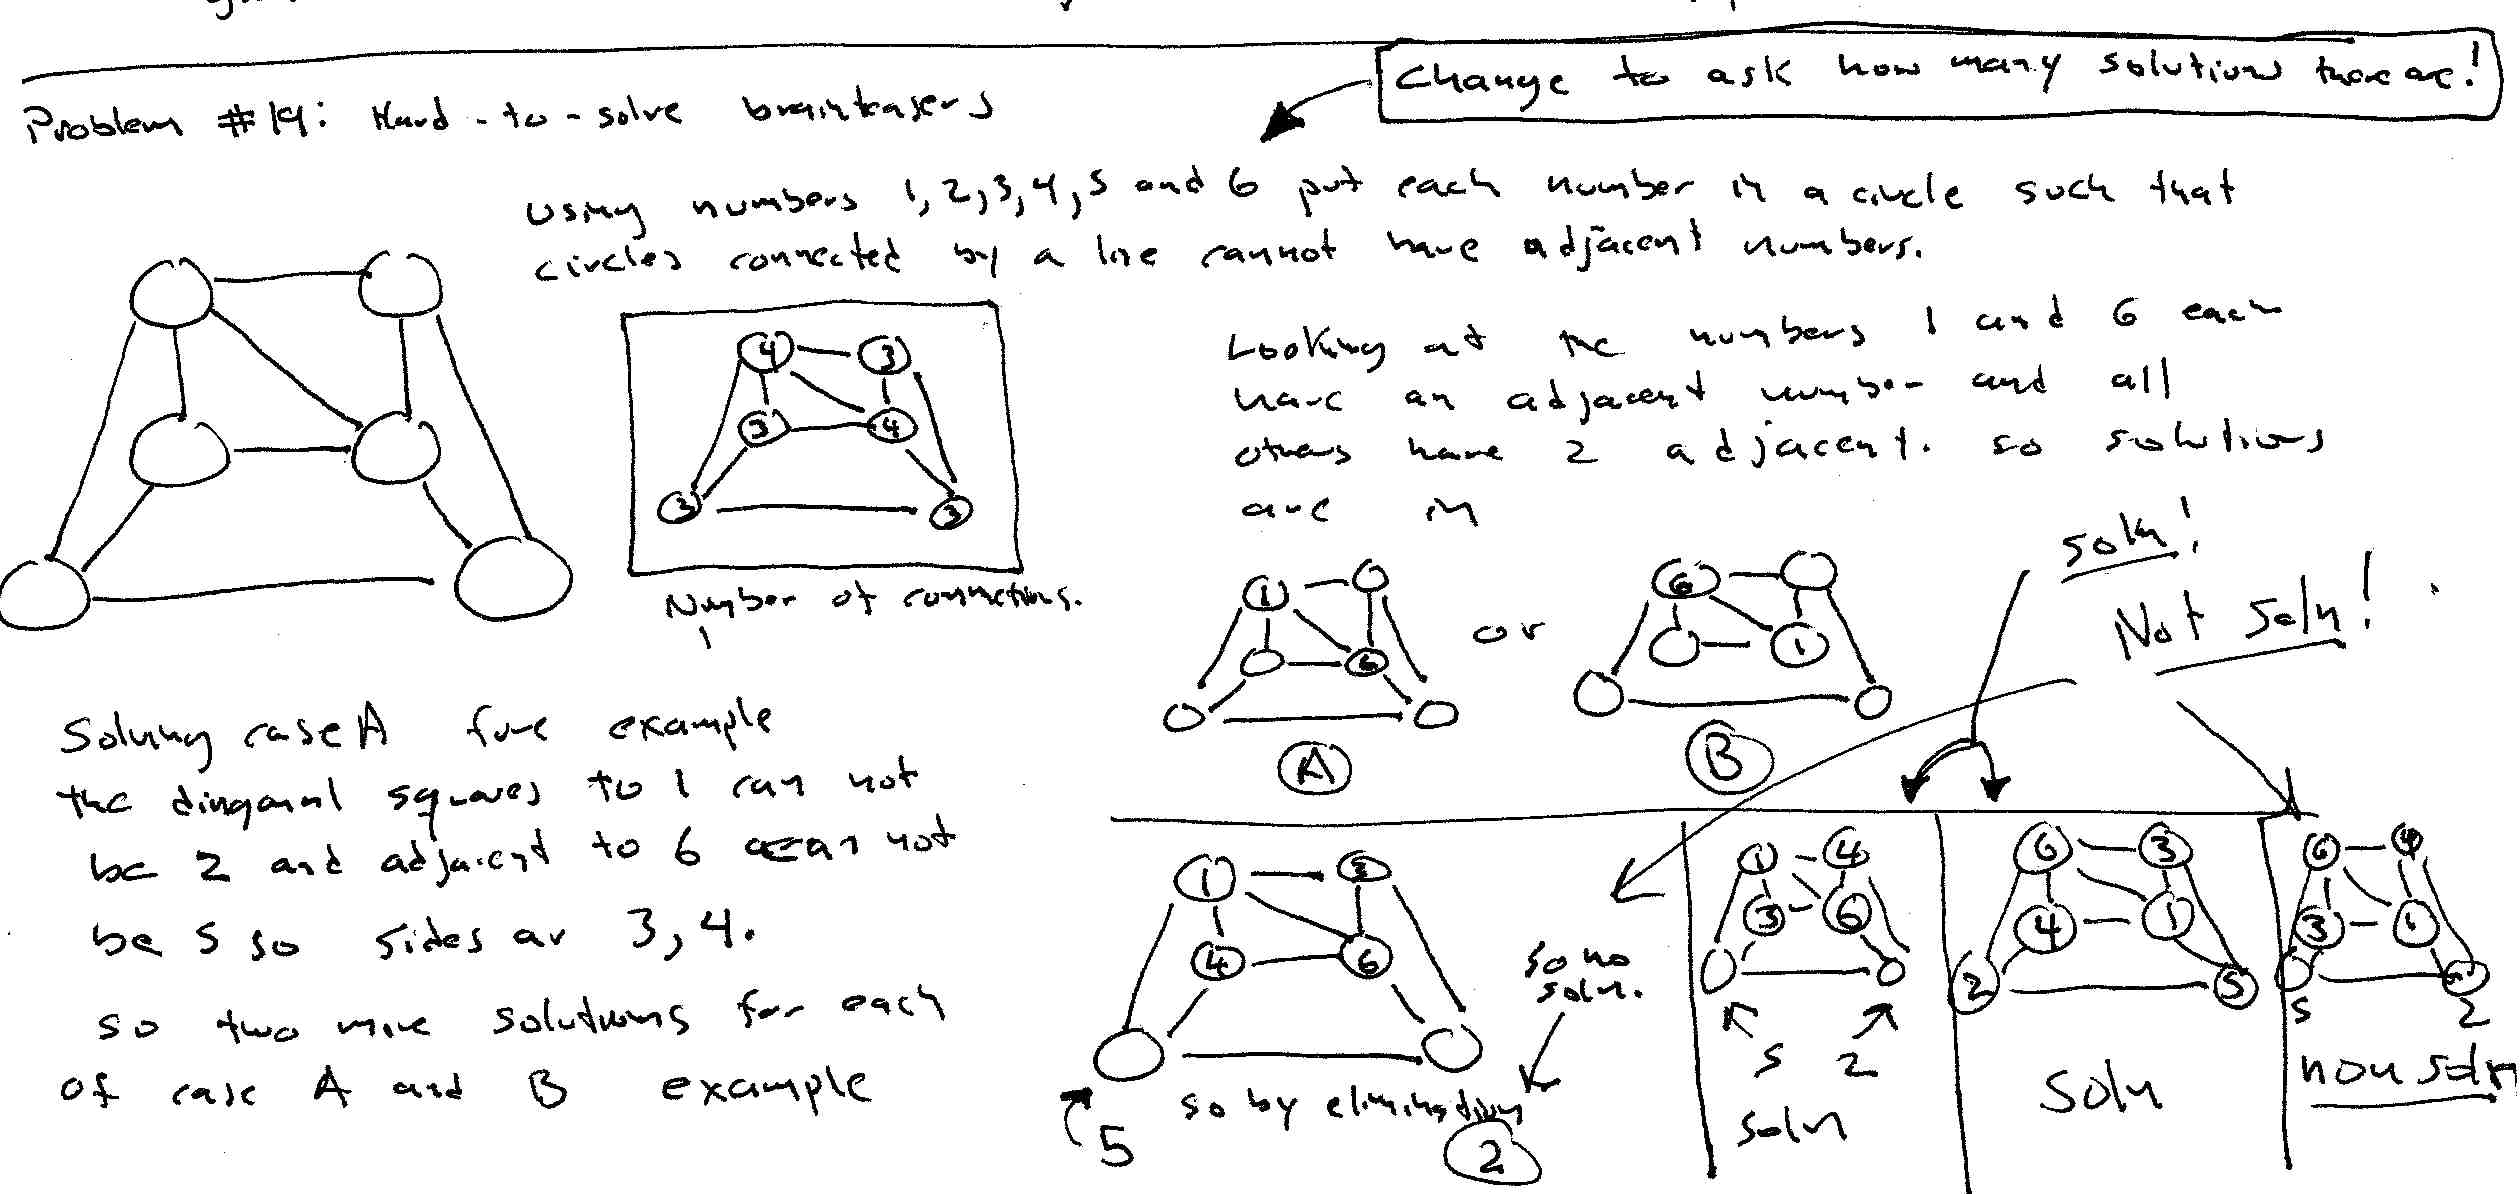 Change to ask how many solutions there are!
Problem #19: Hard-to-solve brainteasers
Using numbers 1, 2, 3, 4, 5 and 6 put each number in a circle such that
circles connected by a line cannot have adjacent numbers.
4 3
3 4
3 3
Number of connections.
Looking at the numbers 1 and 6 each
have an adjacent number and all
others have 2 adjacent. so solutions
are in
soln!
Not soln!
1
6
A
or
6
1
B
Solving case A for example
the diagonal squares to 1 can not
be 2 and adjacent to 6 can not
be 5 so sides ar 3, 4.
so two more solutions for each
of case A and B example
1
4 6
5
so by elimination
2
so no
soln.
1 4
3 6
5 2
soln
6 3
4 1
2 5
Soln
6 4
3 1
5 2
non soln